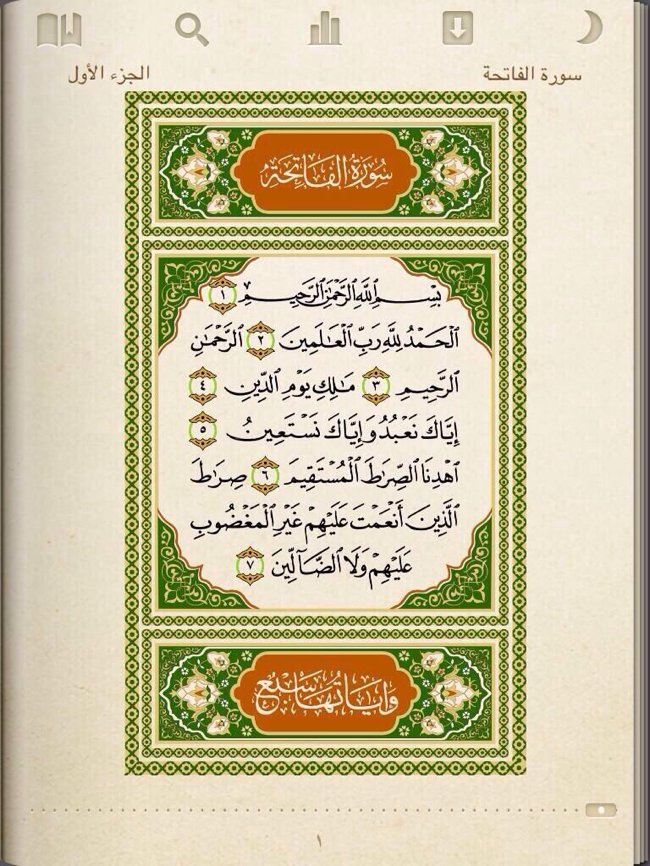 سورة الفاتحة
الجزء الأول
سُورَةُ الفَاتِحَةِ
بِسْمِ ٱللَّهِ ٱلرَّحْمَٰنِ ٱلرَّحِيمِ ١
ٱلْحَمْدُ لِلَّهِ رَبِّ ٱلْعَٰلَمِينَ ٢ ٱلرَّحْمَٰنِ
ٱلرَّحِيمِ ٣ مَٰلِكِ يَوْمِ ٱلدِّينِ ٤
إِيَّاكَ نَعْبُدُ وَإِيَّاكَ نَسْتَعِينُ ٥
ٱهْدِنَا ٱلصِّرَٰطَ ٱلْمُسْتَقِيمَ ٦ صِرَٰطَ
ٱلَّذِينَ أَنْعَمْتَ عَلَيْهِمْ غَيْرِ ٱلْمَغْضُوبِ
عَلَيْهِمْ وَلَا ٱلضَّآلِّينَ ٧
وَآيَاتُهَا سَبْعٌ
١